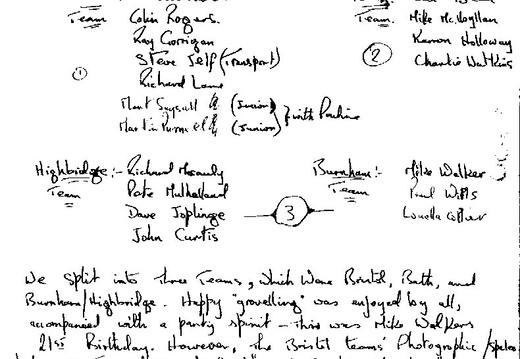 Team Colin Rogers.
Ray Corrigan
Steve Self (Transport)
①
Richard Lane
(Junior)
(Junior)
} with Pauline
Team. Mike
② Karron Holloway
Chantie Watkiss
Highbridge:- Richard
Team Pete Mulholland
Dave Joplinge
John Curtis
3
Burnham:- Mike Walker
Team Paul Wills
Louella Collier
We split into three Teams, which were Bristol, Bath, and
Burnham/Highbridge. Happy "grovelling" was enjoyed by all,
accompanied with a party spirit - this was Mike Walkers
21st Birthday. However, the Bristol teams' Photographic /